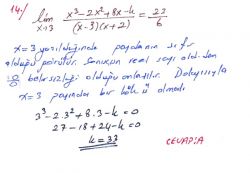 14/ lim x→3 (x³-2x²+8x-k)/((x-3)(x+2)) = 23/6
x=3 yazıldığında paydanın sıfır
olduğu görülür. Sonucun real sayı olduğundan
0/0 belirsizliği olduğu anlaşılır. Dolayısıyla
x=3 payında bir kökü olmalı
3³-2.3²+8.3-k=0
27-18+24-k=0
k=33
CEVAP:A